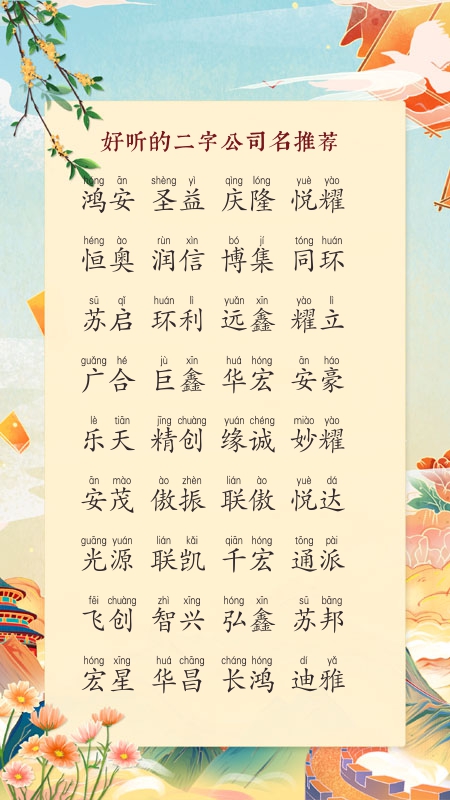 好听的二字公司名推荐
hóng ān shèng yì qìng lóng yuè yào
鸿安 圣益 庆隆 悦耀
héng ào rùn xìn bó jí tóng huán
恒奥 润信 博集 同环
sū qǐ huán lì yuǎn xīn yào lì
苏启 环利 远鑫 耀立
guǎng hé jù xīn huá hóng ān háo
广合 巨鑫 华宏 安豪
lè tiān jīng chuàng yuán chéng miào yào
乐天 精创 缘诚 妙耀
ān mào ào zhèn lián ào yuè dá
安茂 傲振 联傲 悦达
guāng yuán lián kǎi qiān hóng tōng pài
光源 联凯 千宏 通派
fēi chuàng zhì xīng hóng xīn sū bāng
飞创 智兴 弘鑫 苏邦
hóng xīng huá chāng cháng hóng dí yǎ
宏星 华昌 长鸿 迪雅